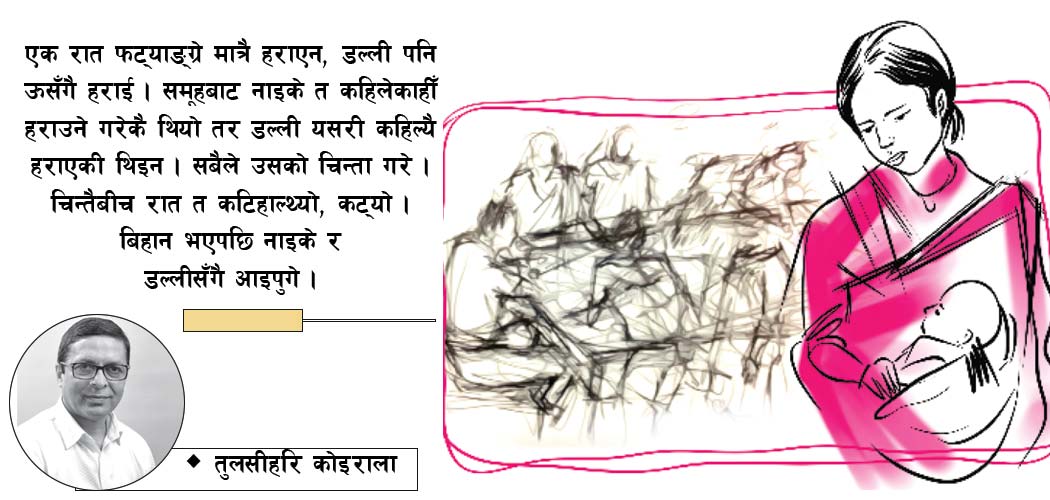 एक रात फट्याङ्ग्रे मात्रै हराएन, डल्ली पनि
ऊसँगै हराई । समूहबाट नाइके त कहिलेकाहीँ
हराउने गरेकै थियो तर डल्ली यसरी कहिल्यै
हराएकी थिइन । सबैले उसको चिन्ता गरे ।
चिन्तैबीच रात त कटिहाल्थ्यो, कट्यो ।
बिहान भएपछि नाइके र
डल्लीसँगै आइपुगे ।
तुलसीहरि कोइराला